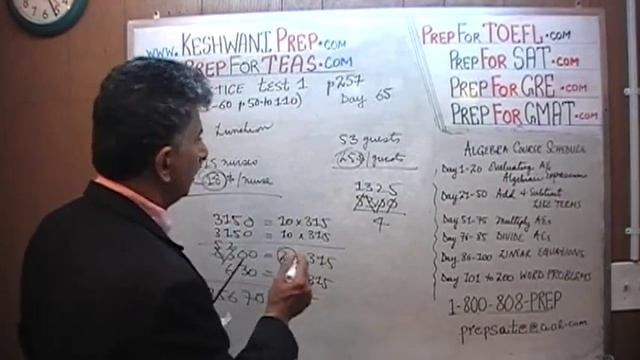 WWW.KESHWANIPREP.COM
PREPFORTEAS.COM
PRACTICE test 1 p257
-60 p.50 to 110) Day 65
Luncheon
53 guests
25¢/guests
15 nurses
/nurse
1325
4
3150 = 10 x 315
3150 = 10 x 315
630
315
PREPFORTOEFL.COM
PREPFORSAT.COM
PREPFORGRE.COM
PREPFORGMAT.COM
ALGEBRA COURSE SCHEDULE
Day 1-20 Evaluating AEs
Algebraic Expression
Day 21-50 Add & Subtract
LIKE TERMS
Day 51-75 Multiply AEs
Day 76-85 DIVIDE AEs
Day 86-100 LINEAR EQUATIONS
Day 101 to 200 WORD PROBLEMS
1-800-808-PREP
prepsate@aol.com